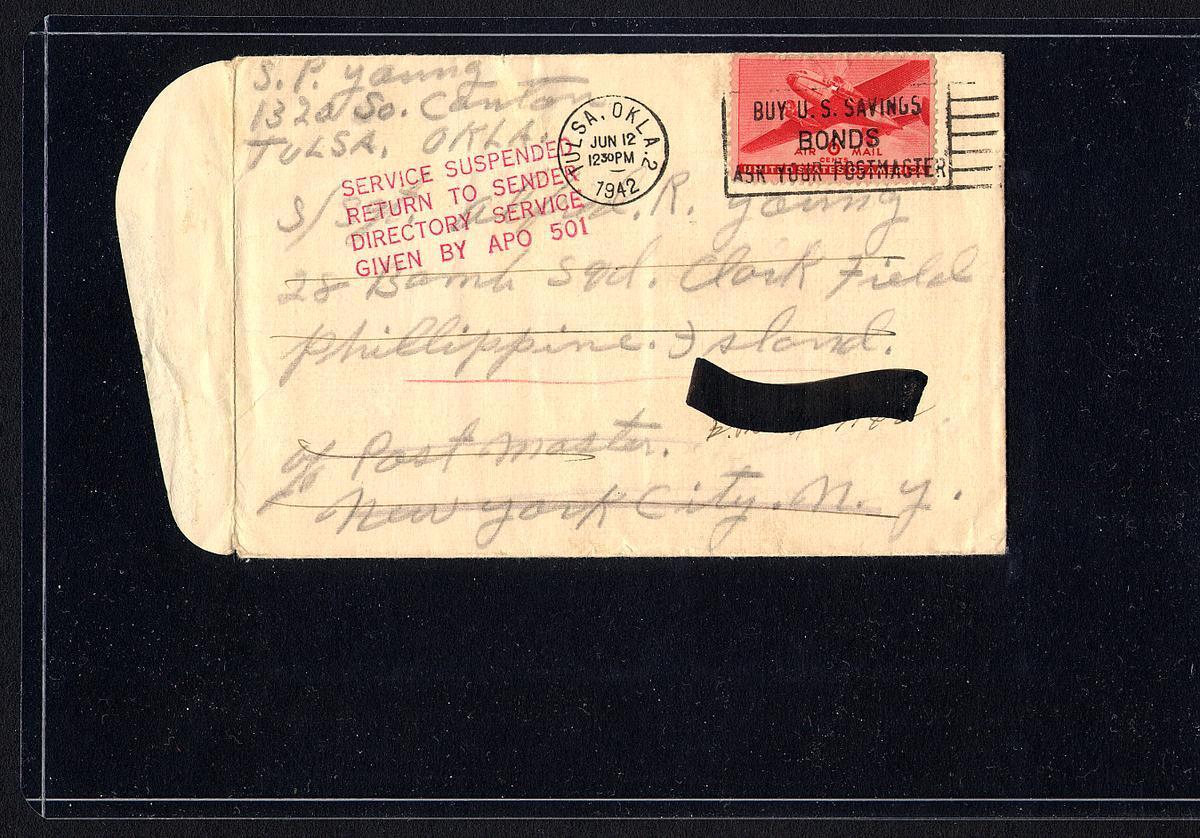 S. P. Young
1320 So. Canton
TULSA, OKLA.
TULSA, OKLA. 2
JUN 12
12 30 PM
1942
BUY U. S. SAVINGS
BONDS
ASK YOUR POSTMASTER
AIR 6 MAIL
CENTS
UNITED STATES OF AMERICA
SERVICE SUSPENDED
RETURN TO SENDER
DIRECTORY SERVICE
GIVEN BY APO 501
S/Sgt. R. Young
28 Bomb Sqd. Clark Field
Phillippine. Island.
c/o Post Master.
New York City. N. Y.